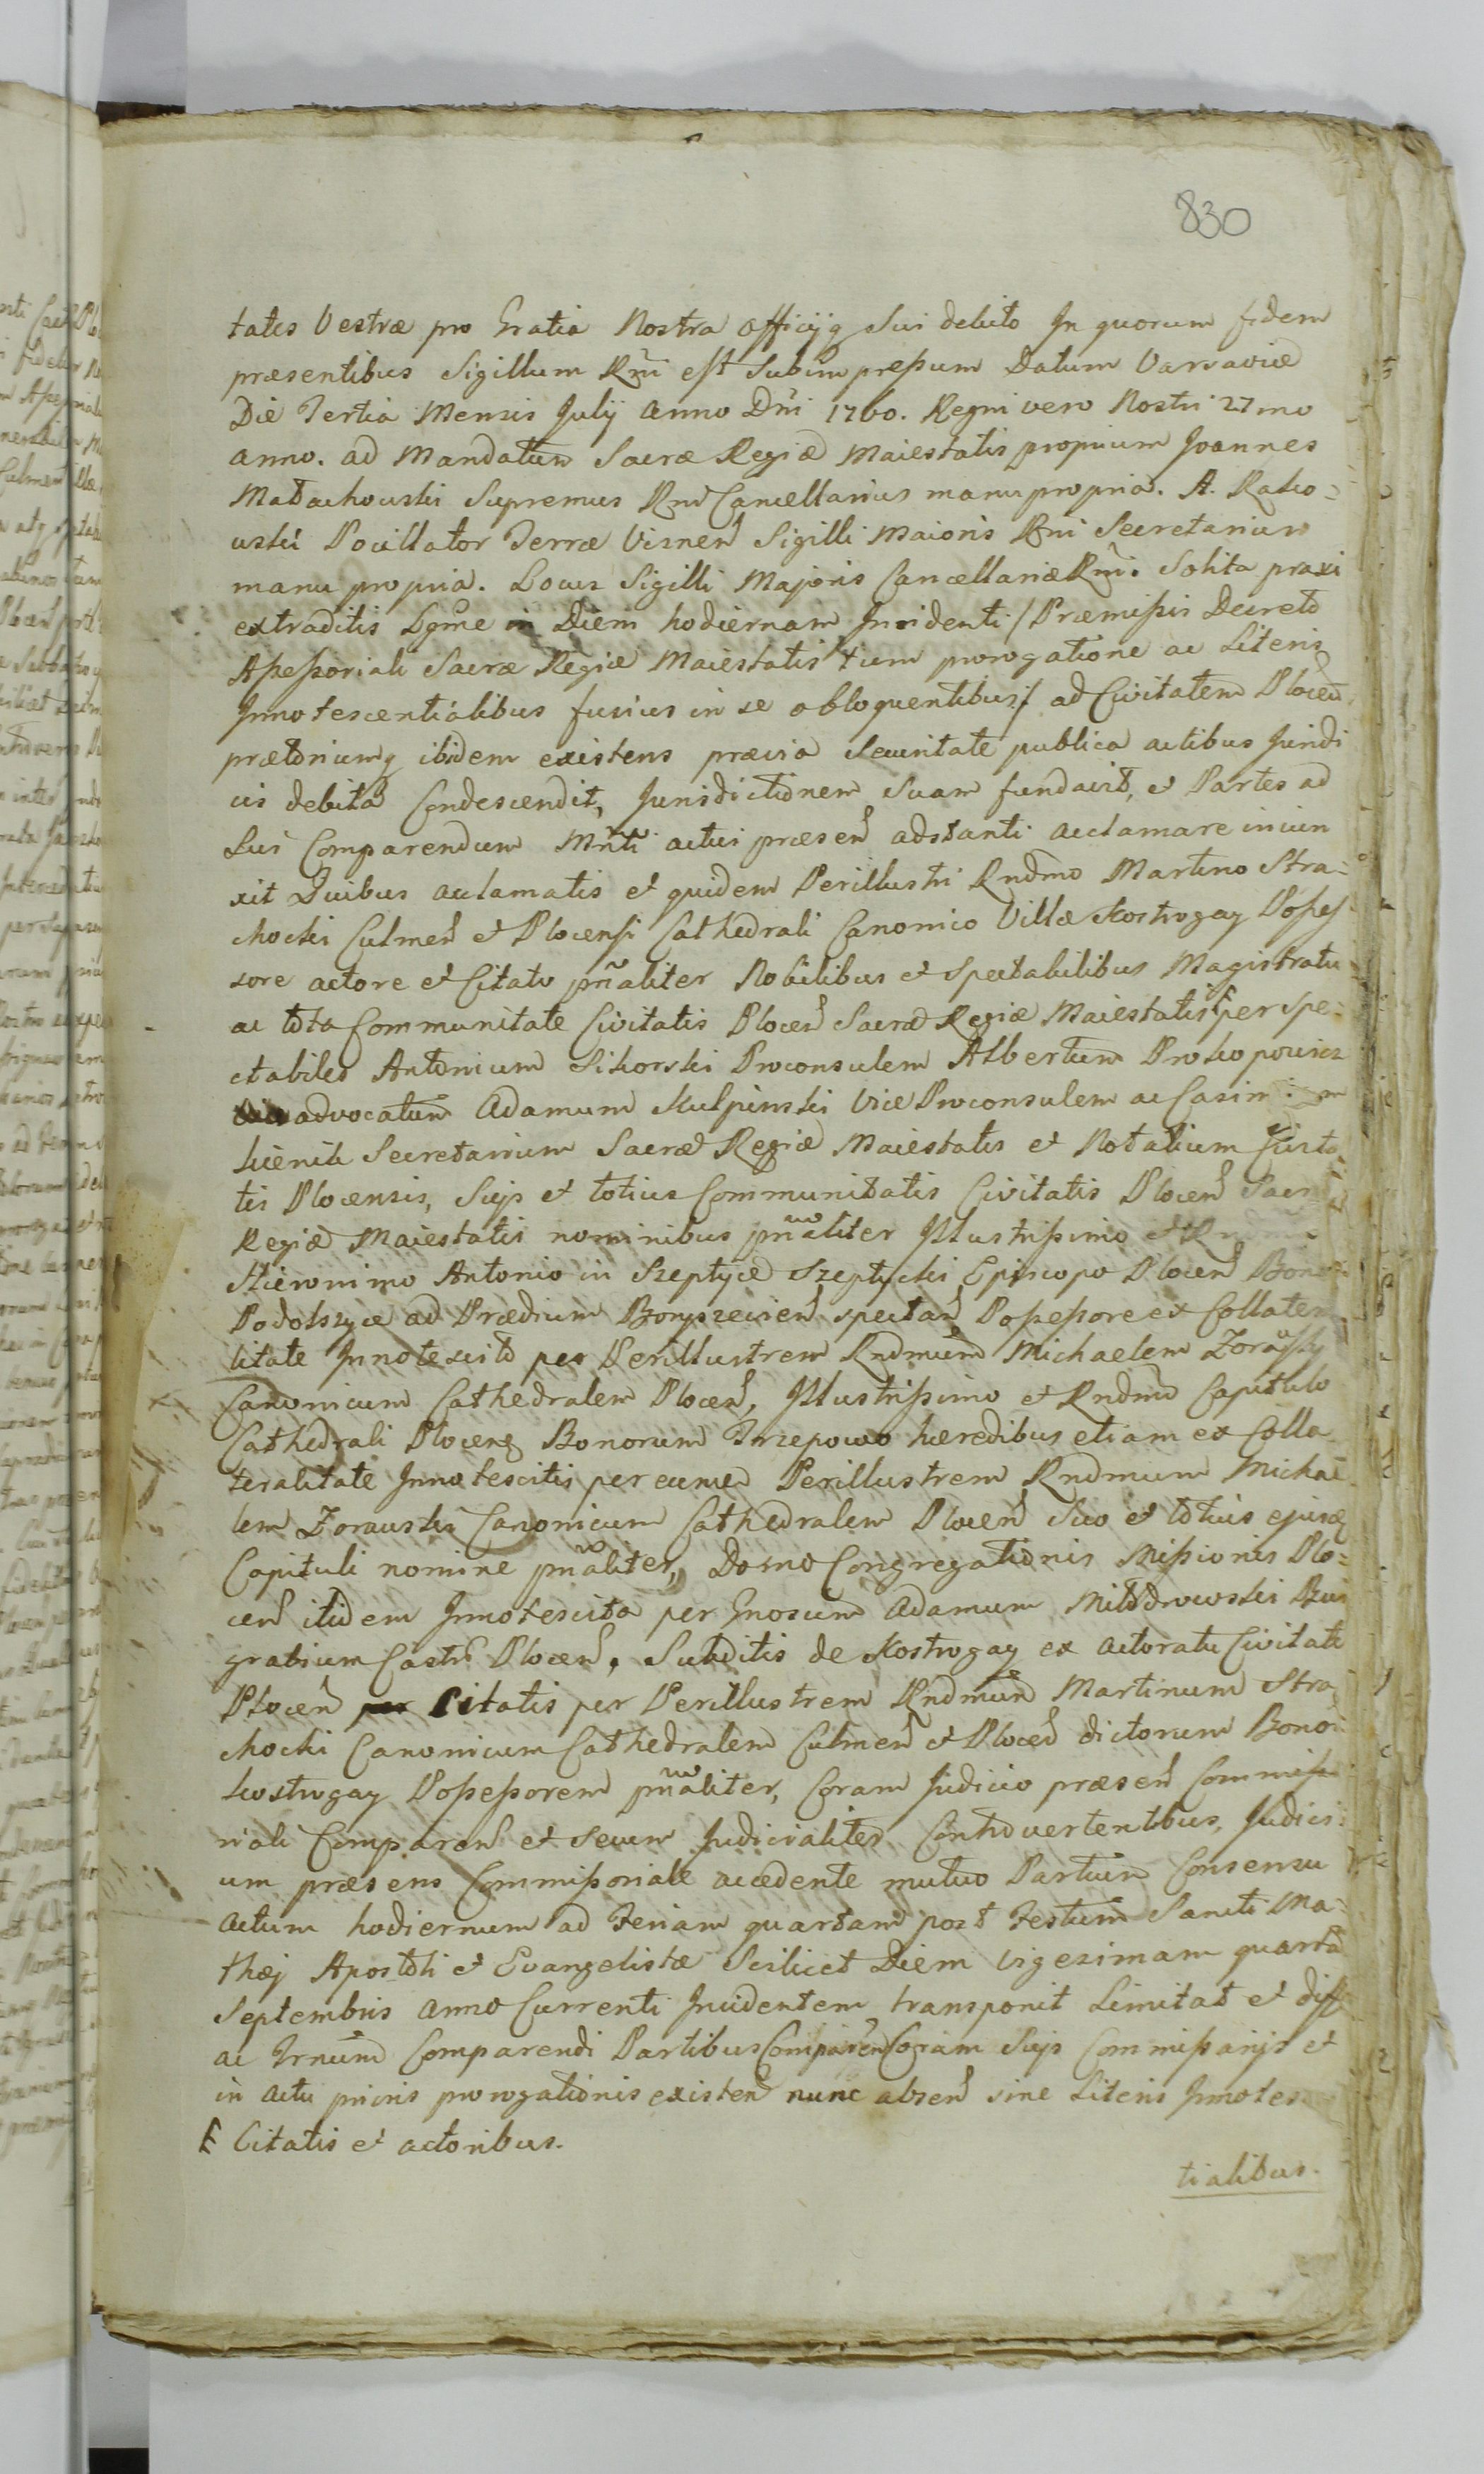 830
tates Vestræ pro Gratia Nostra Officijq Sui debito In quorum fidem
præsentibus Sigillum Rñi est Subimpressum Datum Varsaviæ
Die Tertia Mensis Julij Anno Dñi 1760. Regni vero Nostri 27mo
anno. ad Mandatum Sacræ Regiæ Maiestatis proprium Joannes
Małachowski Supremus Rni Cancellarius manu propria. A. Rako=
wski Pocillator Terræ Visneñ Sigilli Maioris Rni Secretarius
manu propria. Locus Sigilli Majoris Cancellariæ Rñi. Solita praxi
extraditis Lgme in Diem hodiernam Incidenti / Præmissis Decreto
Assessoriali Sacræ Regiæ Maiestatis tum prorogatione ac Literis
Innotescentialibus fusius in se obloquentibus / ad Civitatem Ploceñ
prætoriumq ibidem existens prævia Securitate publica actibus Juridi
cis debita Condescendit, Jurisdictionem Suam fundavit, et Partes ad
Sui Comparendum Mñti actui præseñ adstanti acclamare iniun
xit Quibus acclamatis et quidem Perillustri Rndmo Martino Stra=
chocki Culmeñ et Plocensi Cathedrali Canonico Villæ Kostrogay Posses
sore actore et Citato pñaliter Nobilibus et Spectabilibus Magistratu
ac tota Communitate Civitatis Ploceñ Sacræ Regiæ Maiestatis per Spe=
ctabiles Antonium Sikorski Proconsulem Albertum Prokopowicz
advocatum Adamum Kulpinski Vice Proconsulem ac
Secretarium Sacræ Regiæ Maiestatis et Notarium
tis Plocensis, Suis et totius Communitatis Civitatis Ploceñ
Regiæ Maiestatis nominibus pñaliter Illustrissimo et
Hieronimo Antonio in Szeptyce Szeptycki Episcopo Ploceñ
Podolszyce ad Prædium Boryszewieñ spectañ Possessore ex
litate Innotescito per Perillustrem Rndmum Michaelem
Canonicum Cathedralem Ploceñ, Illustrissimo et Rndmo Capitulo
Cathedrali Ploceñ Bonorum Trzepowo hæredibus etiam ex Colla
teralitate Innotescitis per eumd Perillustrem Rndmum Michae
lem Zorawski Canonicum Cathedralem Ploceñ Suo et totius ejusq
Capituli nomine pñaliter, Domo Congregationis Missionis Plo=
ceñ itidem Innotescita per Gnosum Adamum Burg
grabium Castri Ploceñ, Subditis de Kostrogay ex actoratu Civitatis
Ploceñ per Citatis per Perillustrem Rndmum Martinum Stra
chocki Canonicum Cathedralem Culmeñ et Ploceñ dictorum Bonor
Kostrogay Possessorem pñaliter, Coram Judicio præseñ Commisso
riali Compareñ et Secum Judicialiter Controvertentibus, Judici=
um præsens Commissoriale accedente mutuo Partium Consensu
Actum hodiernum ad Feriam quartam post Festum Sancti Ma=
thæj Apostoli et Evangelistæ Scilicet Diem Vigesimam quartam
Septembris Anno Currenti Incidentem transponit Limitat et diff
ac Trnum Comparendi Partibus Compareñ Coram Suis Commissarijs et
in actu prioris prorogationis existeñ nunc abseñ sine Literis Innotes
Citatis et actoribus.
tialibus.